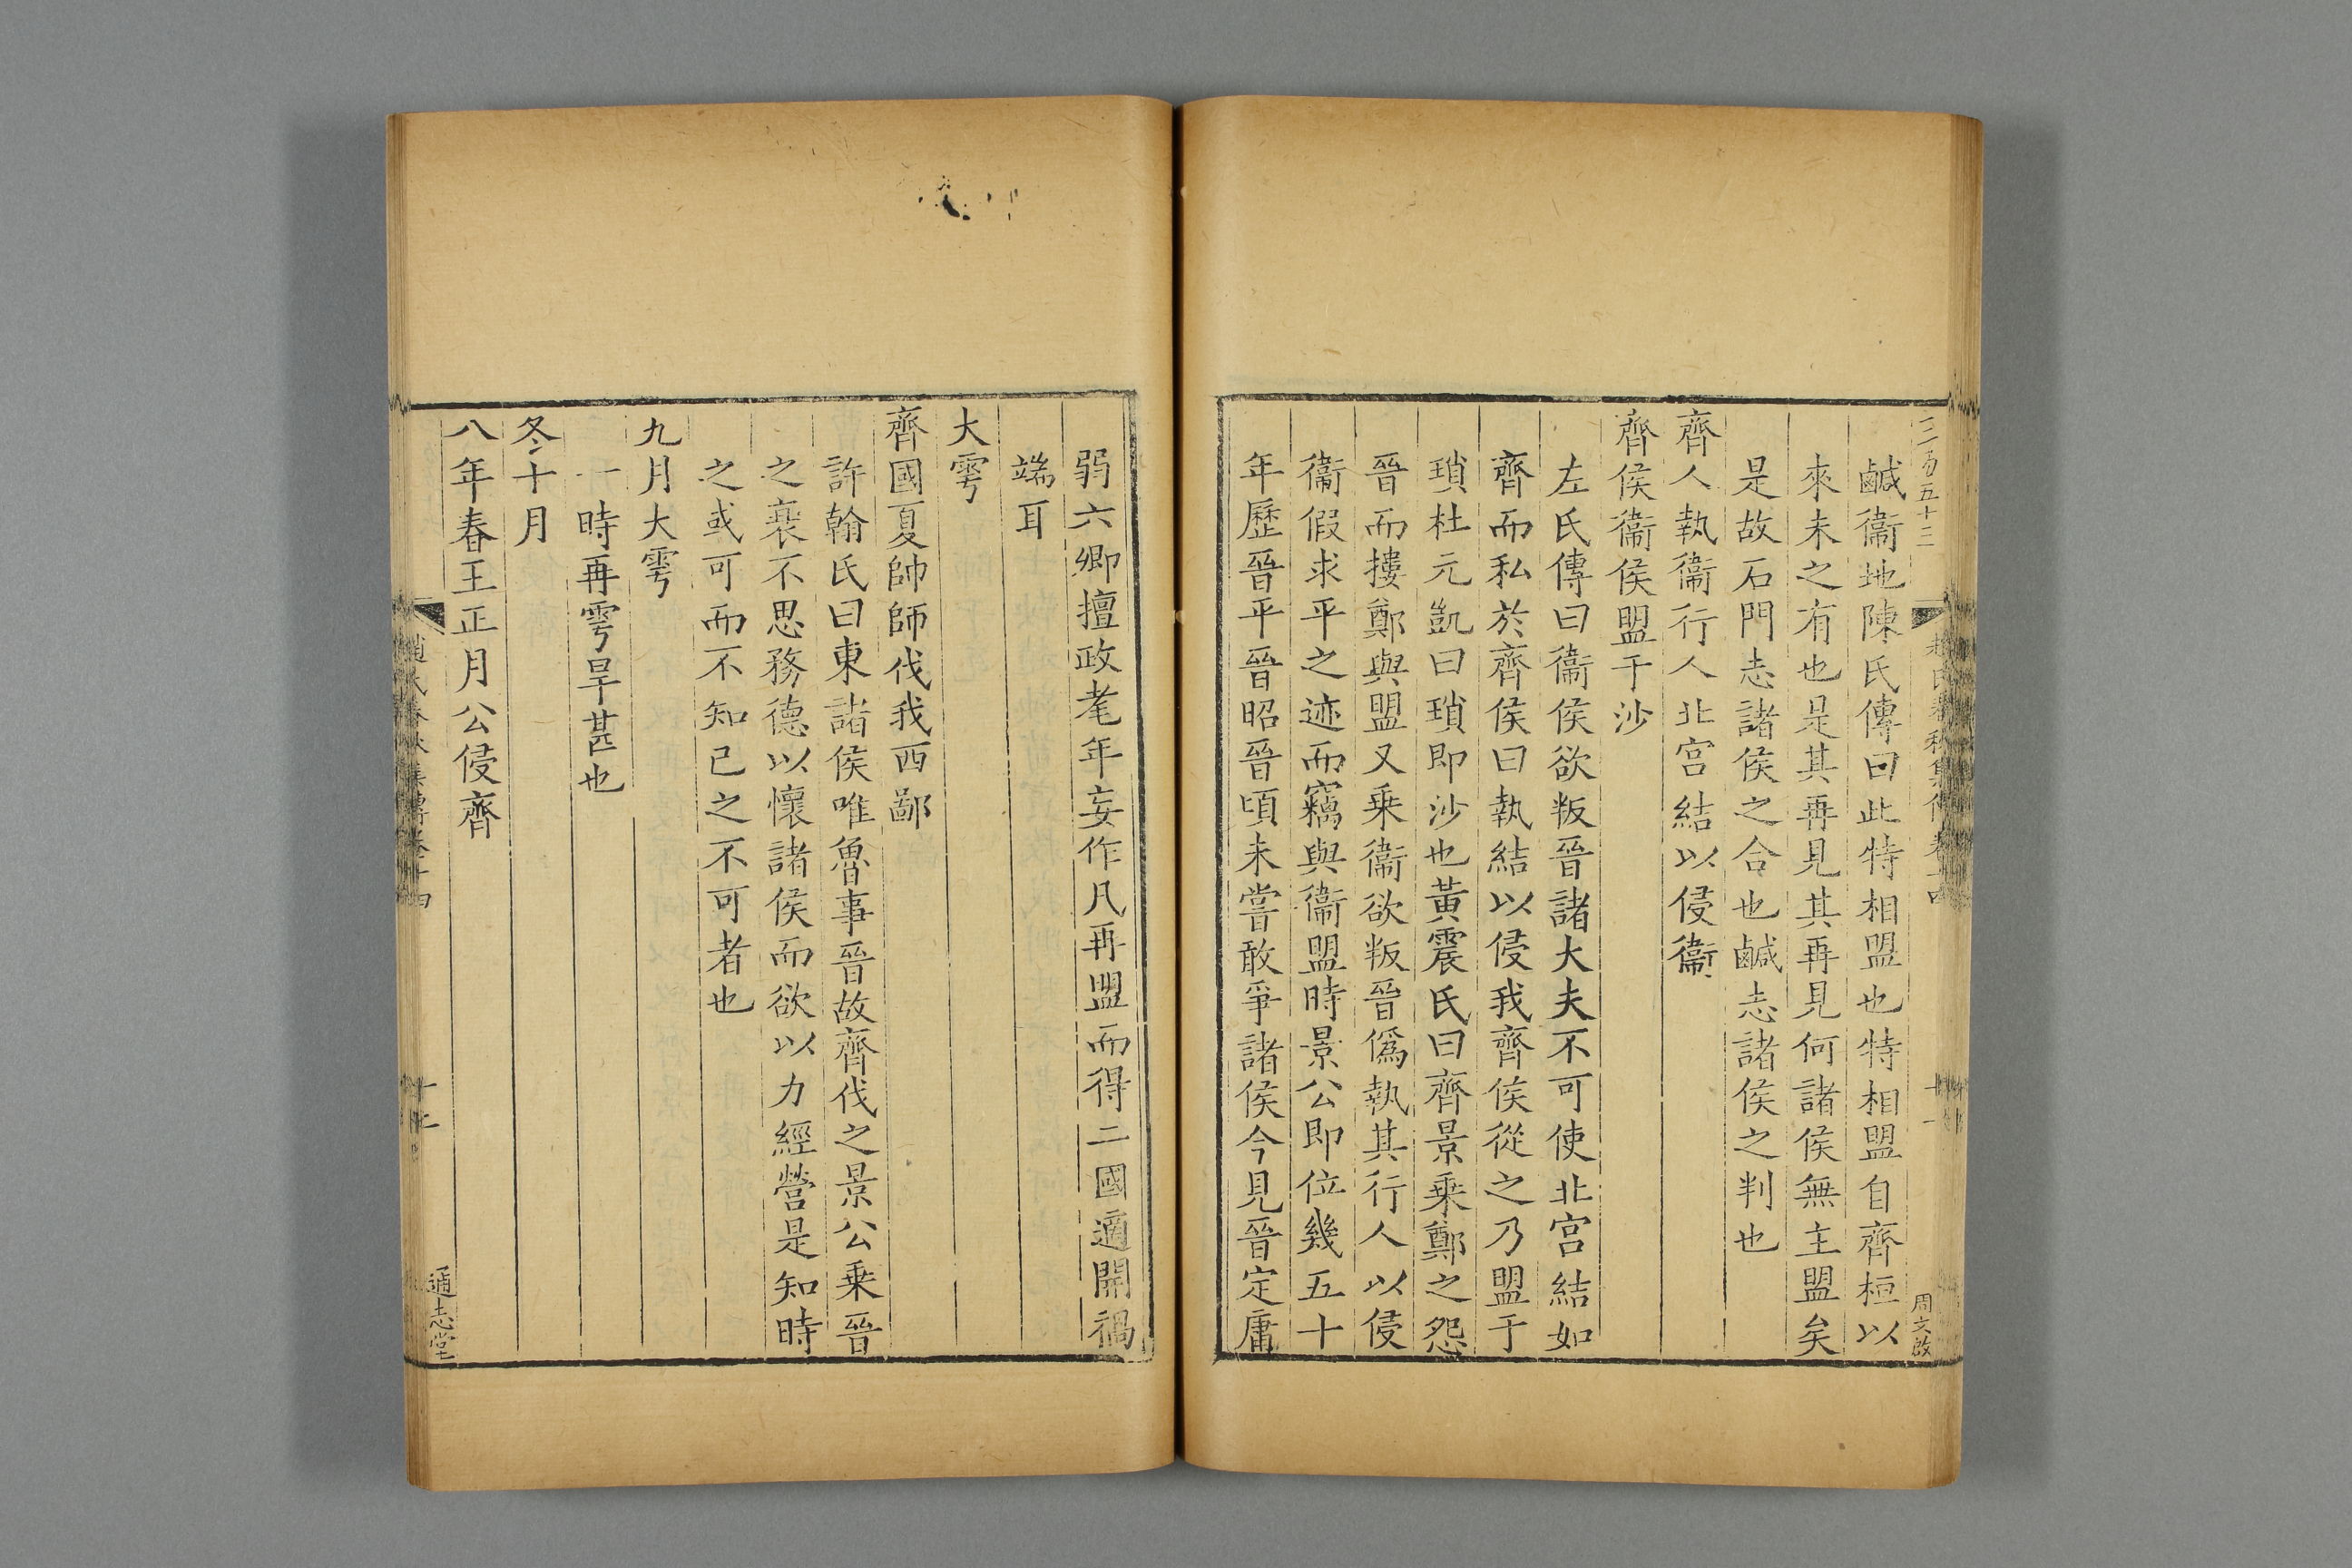 鹹衞地陳氏傳曰此特相盟也特相盟自齊桓以
來未之有也是其再見其再見何諸侯無主盟矣
是故石門志諸侯之合也鹹志諸侯之判也
齊人執衞行人北宫結以侵衞
齊侯衞侯盟于沙
左氏傳曰衞侯欲叛晉諸大夫不可使北宫結如
齊而私於齊侯曰執結以侵我齊侯從之乃盟于
瑣杜元凱曰瑣即沙也黄震氏曰齊景乗鄭之怨
晉而摟鄭與盟又乗衞欲叛晉僞執其行人以侵
衞假求平之迹而竊與衞盟時景公即位幾五十
年歷晉平晉昭晉頃未嘗敢爭諸侯今見晉定庸
周文啟
弱六卿擅政耄年妄作凡再盟而得二國適開禍
端耳
大雩
齊國夏帥師伐我西鄙
許翰氏曰東諸侯唯魯事晉故齊伐之景公乗晉
之衰不思務德以懷諸侯而欲以力經營是知時
之或可而不知已之不可者也
九月大雩
一時再雩旱甚也
冬十月
八年春王正月公侵齊
通志堂